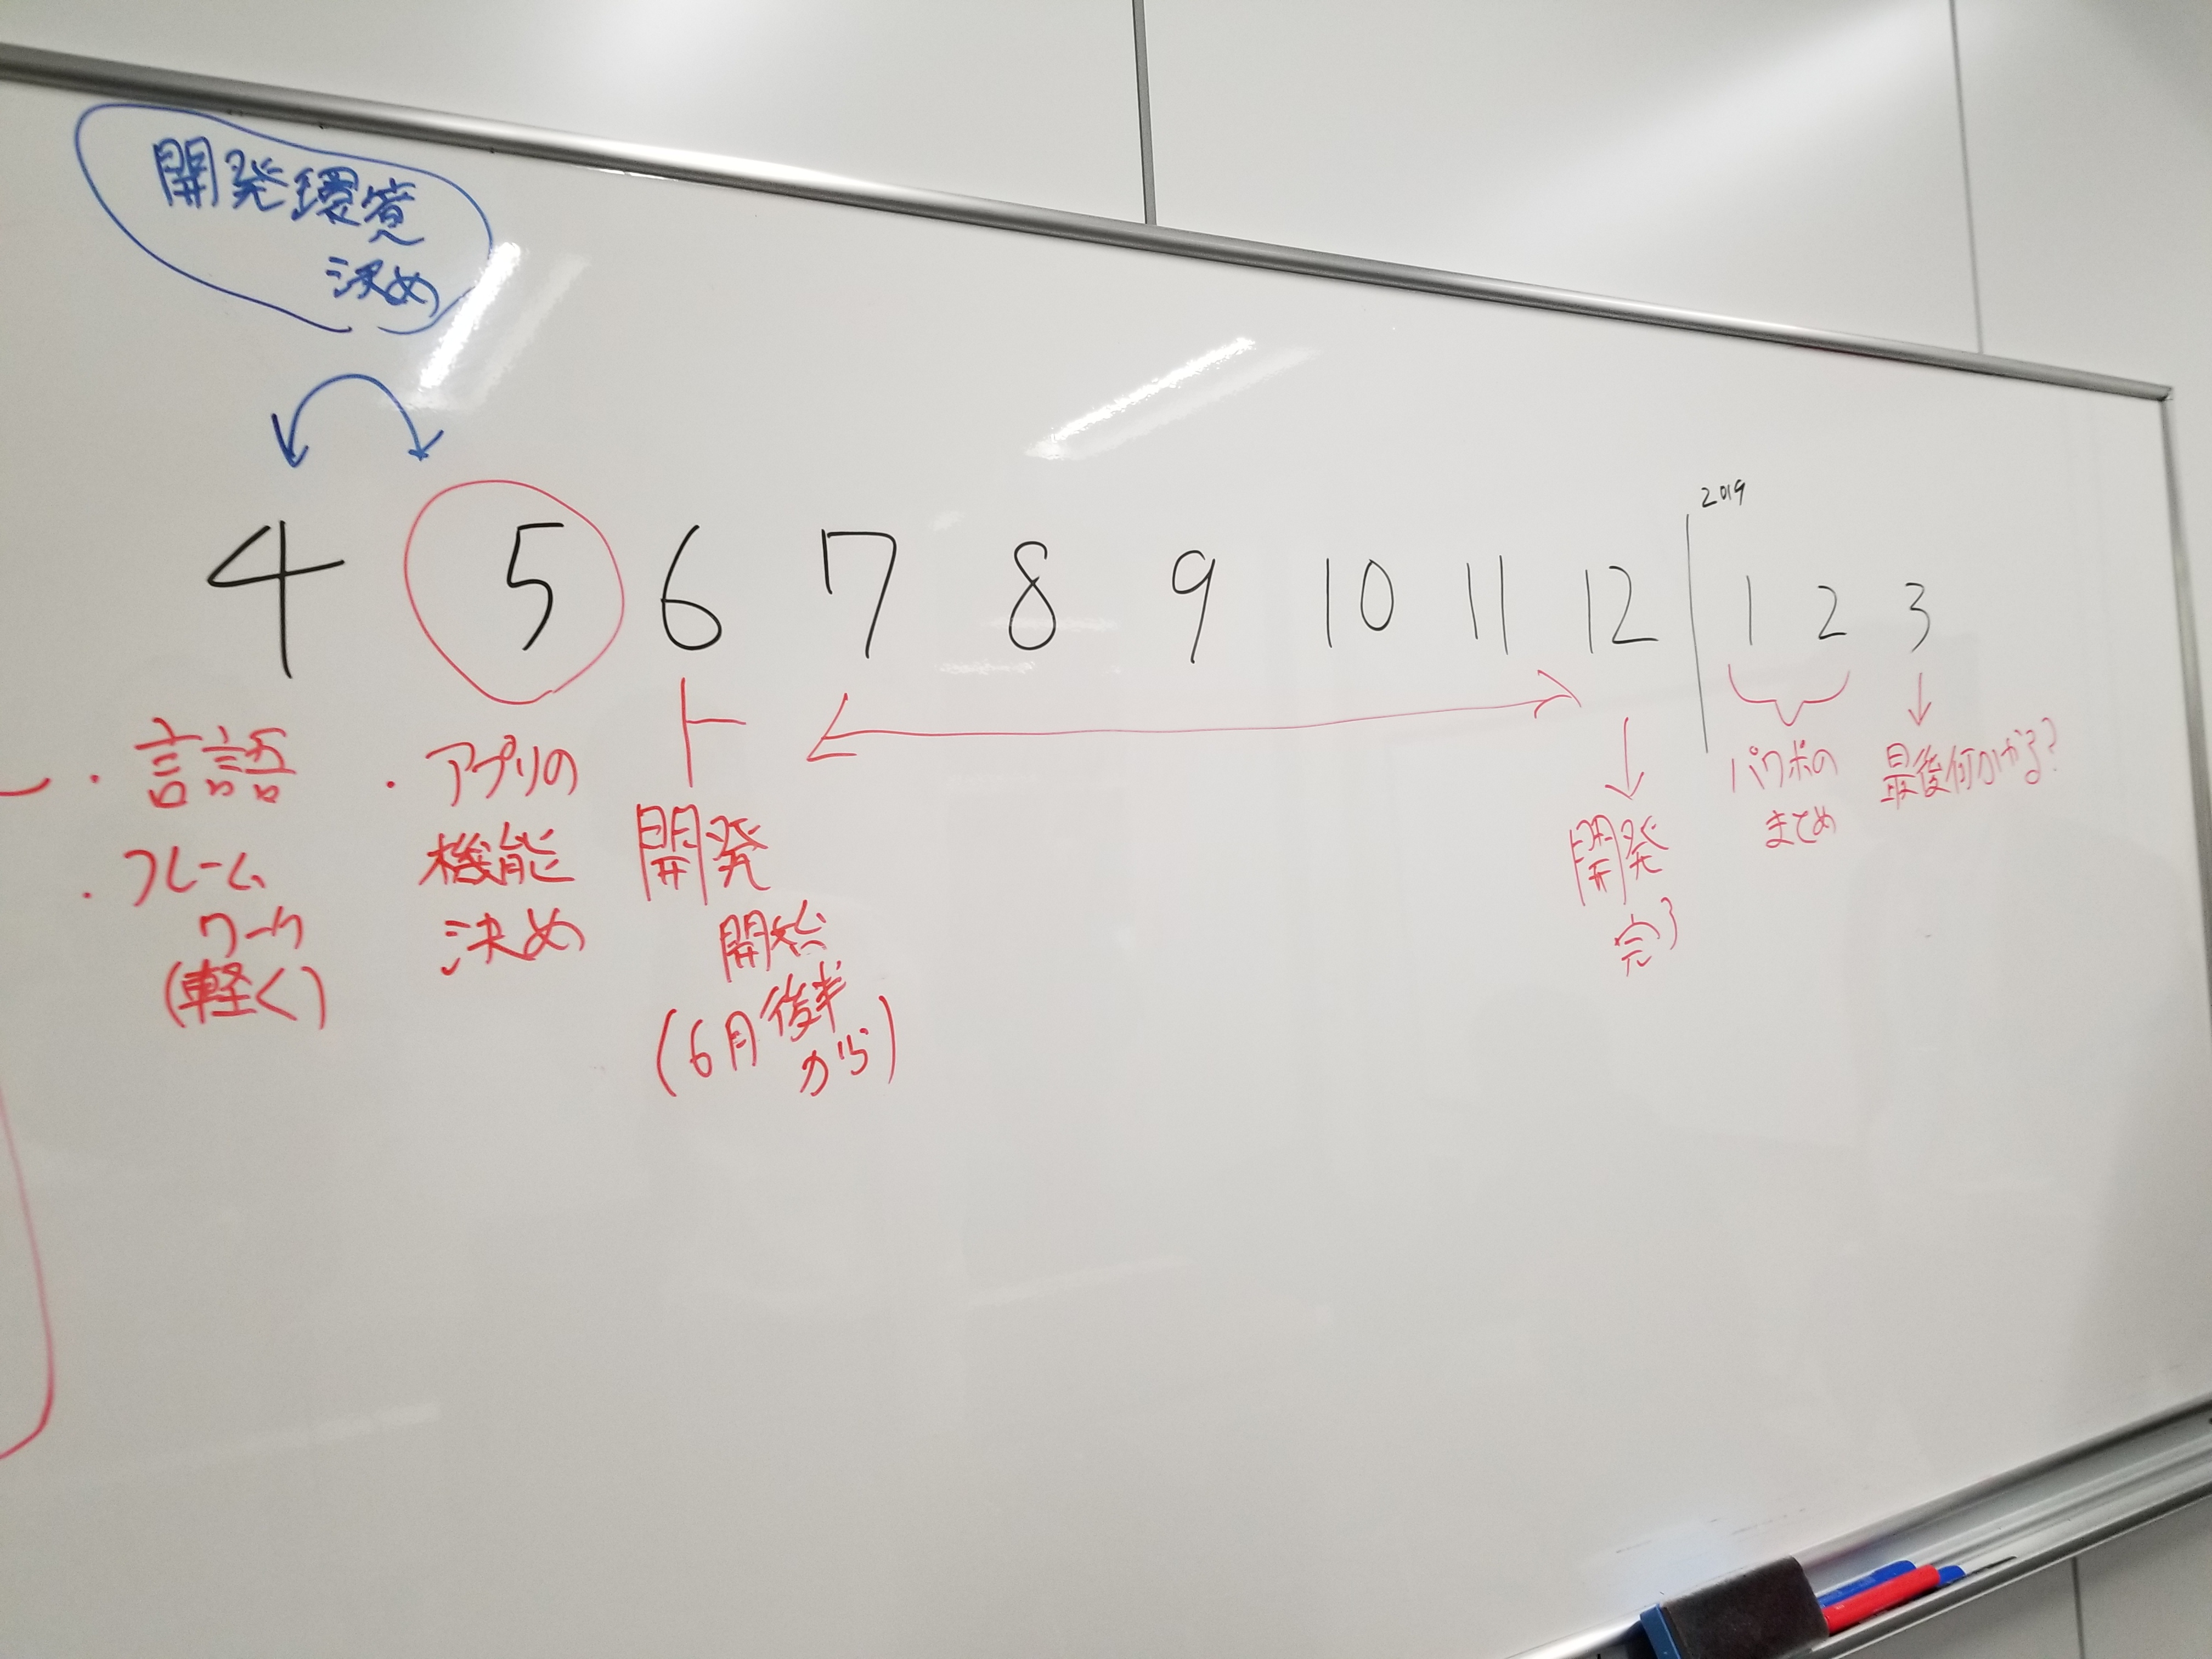 開発環境
決め
4 5 6 7 8 9 10 11 12 1 2 3
2019
・言語
・フレーム
ワーク
(軽く)
・アプリの
機能
決め
開発
開始
(6月後半
から)
開発
完了
パワポの
まとめ
最後何かやる?